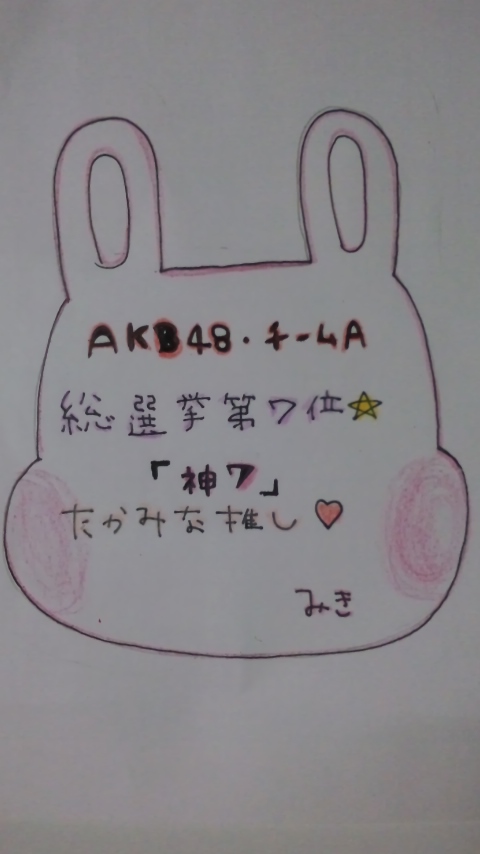 AKB48・チームA
総選挙第7位☆
「神7」
たかみな推し♥
みき